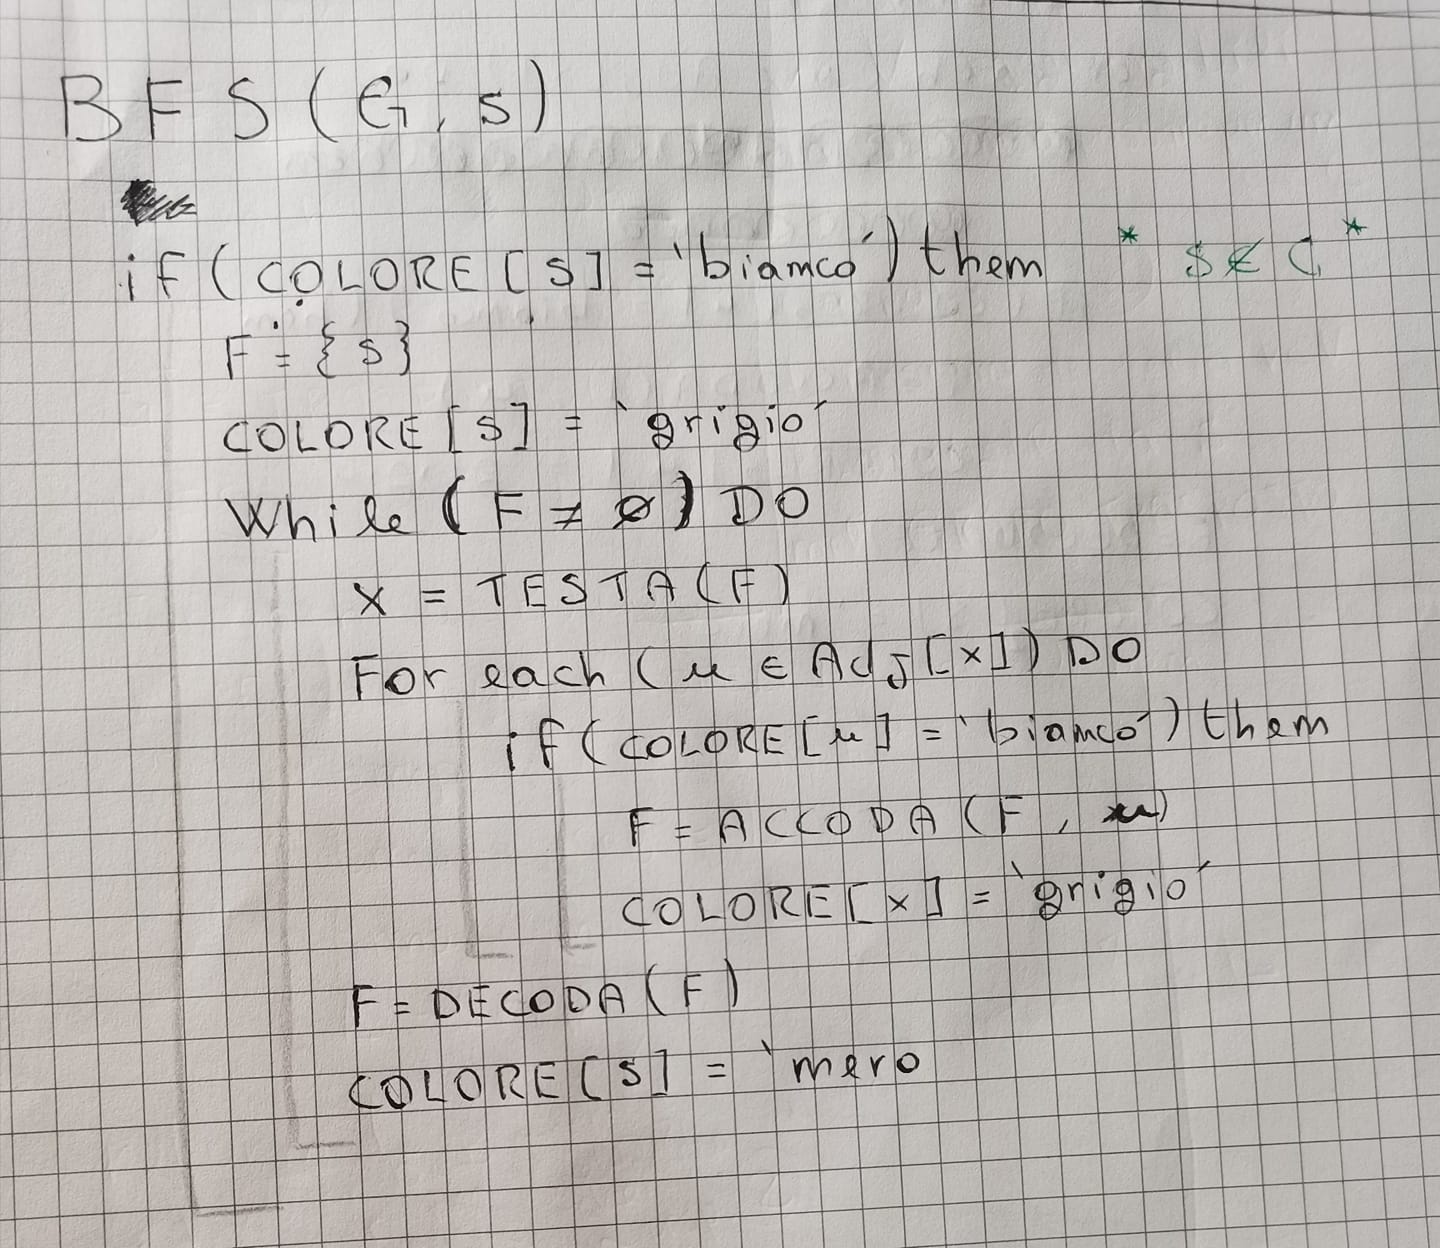 BFS(G, s)
if (COLORE[S] = 'bianco') then * S ∉ C *
F = {s}
COLORE[S] = 'grigio'
While (F ≠ ∅) DO
X = TESTA(F)
For each (u ∈ Adj[x]) DO
if (COLORE[u] = 'bianco') then
F = ACCODA(F, u)
COLORE[x] = 'grigio'
F = DECODA(F)
COLORE[S] = 'nero